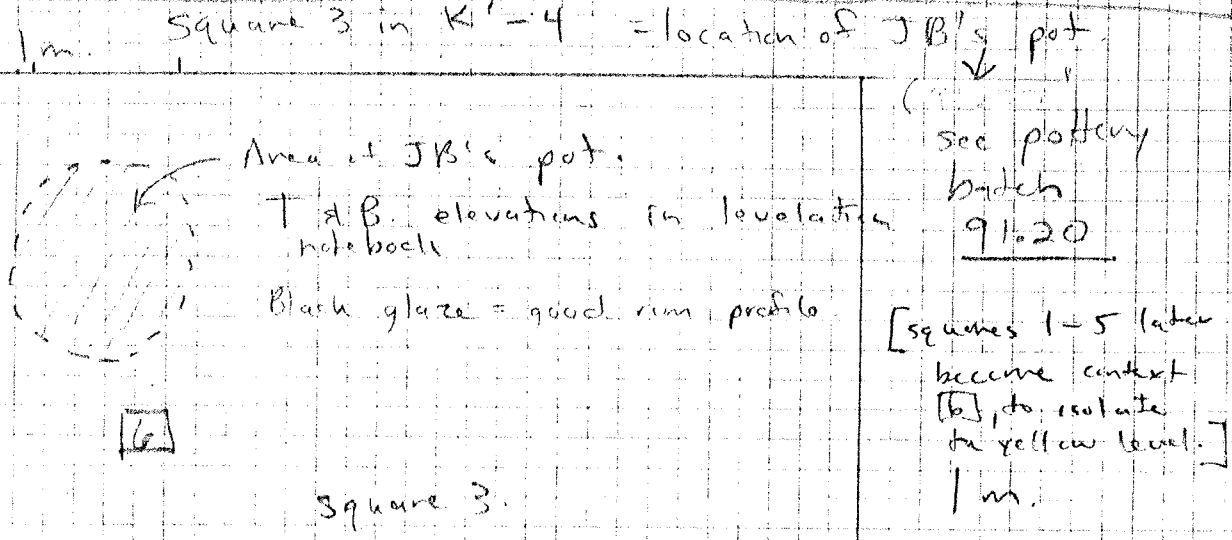 Square 3 in K'-4 = location of JB's pot.
1m.
Area of JB's pot.
T & B. elevations in levelation
notebook
Black glaze = good rim profile
[6]
Square 3.
see pottery
batch
91.20
[squares 1-5 later
become context
[6], to isolate
the yellow level.]
1 m.